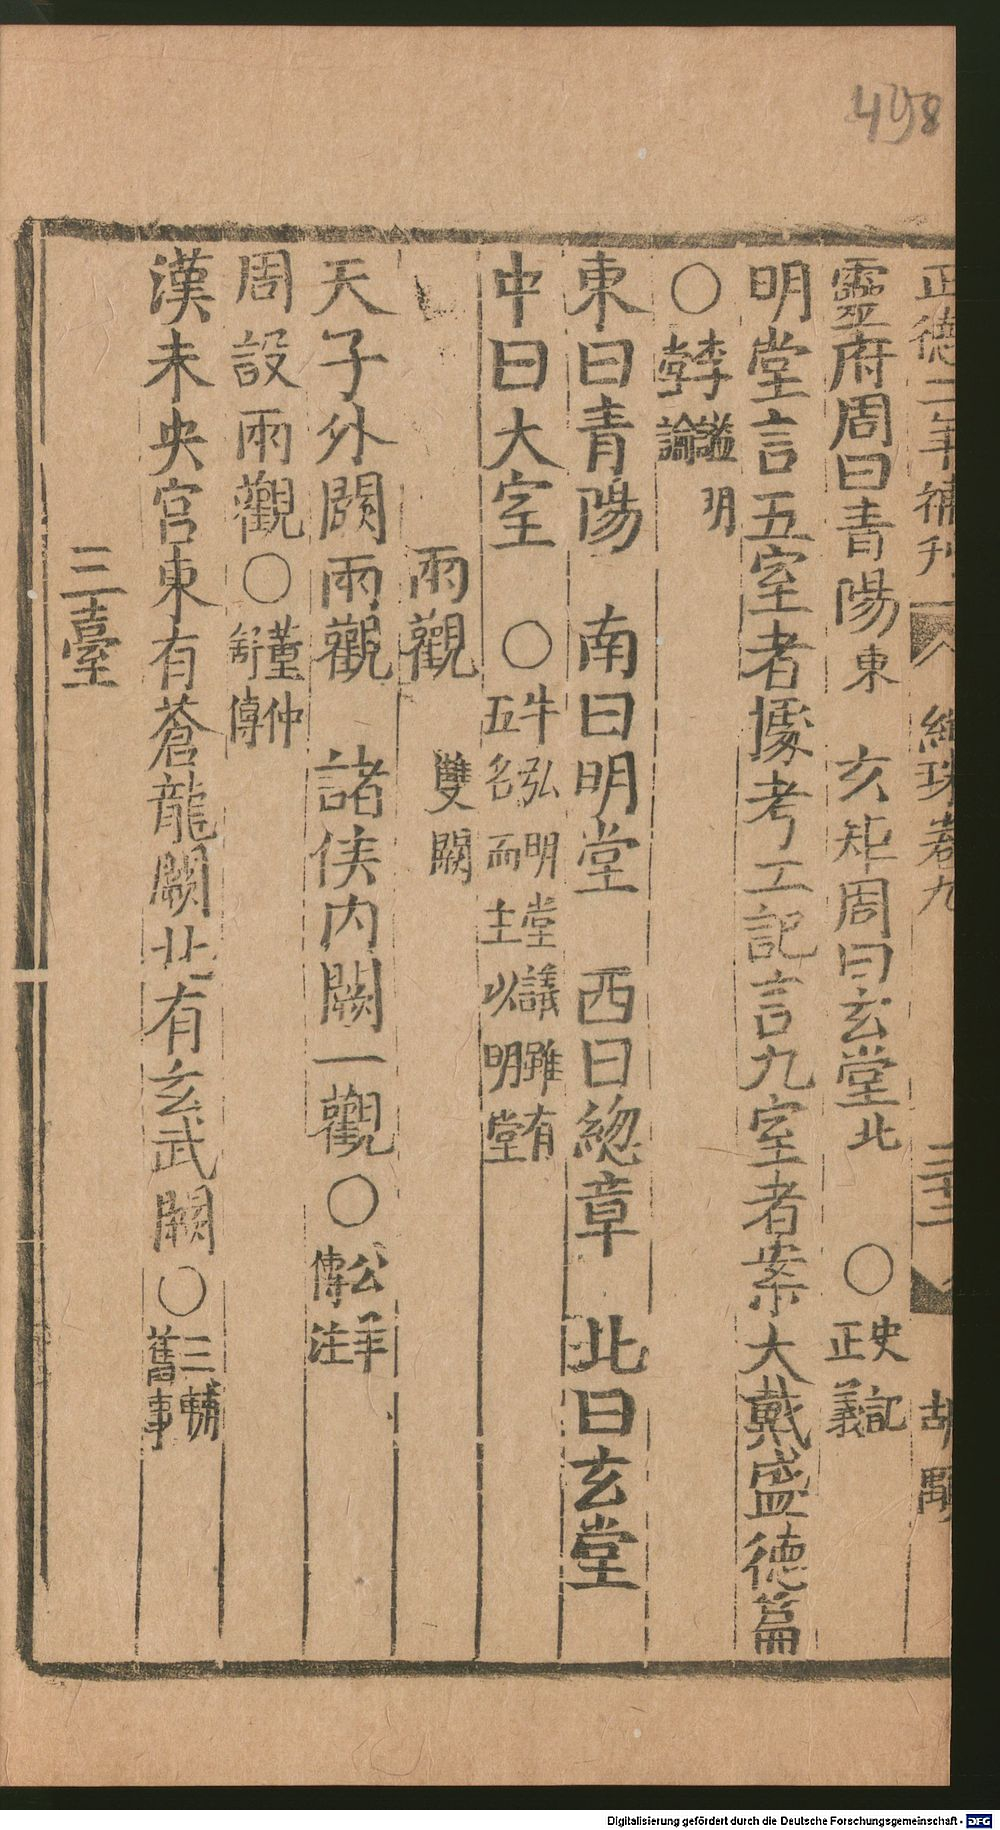 498
正德二年補刊
卷九
三十二
靈府周曰青陽東　玄矩周曰玄堂北　○史記正義
明堂言五室者據考工記言九室者案大戴盛德篇
○李謐明堂論
東曰青陽　南曰明堂　西曰總章　北曰玄堂
中曰大室　○牛弘明堂議雖有五名而主以明堂
兩觀　雙闕
天子外闕兩觀　諸侯內闕一觀○公羊傳注
周設兩觀○董仲舒傳
漢未央宫東有蒼龍闕北有玄武闕○三輔舊事
三臺
Digitalisierung gefördert durch die Deutsche Forschungsgemeinschaft - DFG